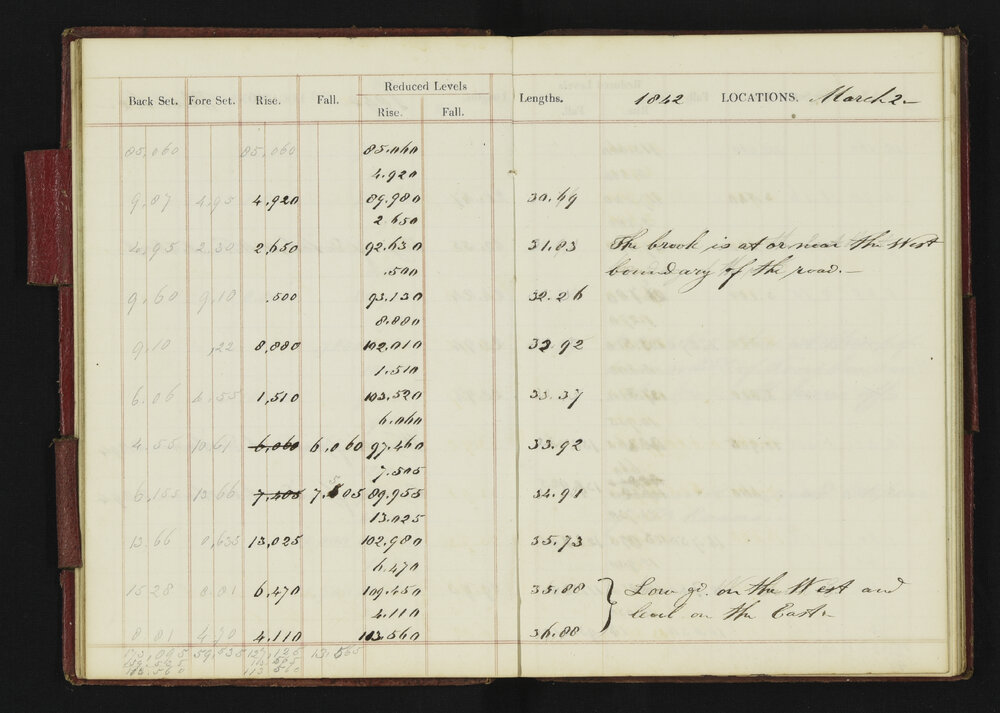 Reduced Levels
Back Set. Fore Set. Rise. Fall. Rise. Fall. Lengths. 1842 LOCATIONS. March 2
85,060 85,060 85.060
4.920
9.87 4.95 4,920 89.980 30.49
2.650
4.95 2.30 2,650 92.630 31.83 The brook is at or near the West
.500 boundary of the road.—
9.60 9.10 .500 93.130 32.26
8.880
9.10 ,22 8,880 102.010 32.92
1.510
6.06 4.55 1,510 103.520 33.37
6.060
4.55 10.61 6,060 6,060 97.460 33.92
7.505
6,155 13.66 89.955 34.91
13.025
13.66 0,635 13,025 102.980 35.73
6.470
15.28 8.81 6,470 109.450 35.88 Low gd. on the West and
4.110 on the East
8.81 4.70 4.110 113.560 36.88
59,535 127,125 13,565
113.560 113 560